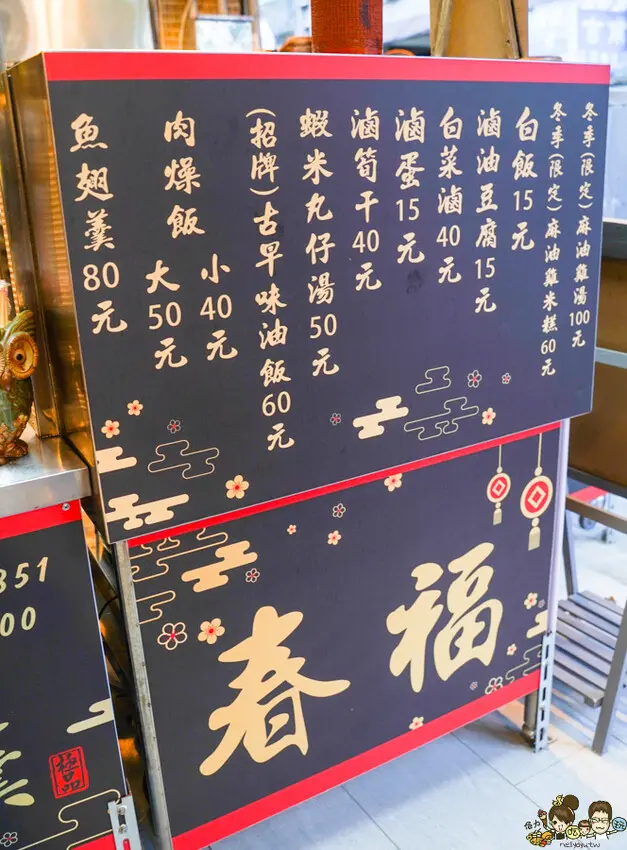 冬季(限定)麻油雞湯100元
冬季(限定)麻油雞米糕60元
白飯15元
滷油豆腐15元
白菜滷40元
滷蛋15元
滷筍干40元
蝦米丸仔湯50元
(招牌)古早味油飯60元
肉燥飯
小40元
大50元
魚翅羹80元
福
春
351
00
nellydyu.tw